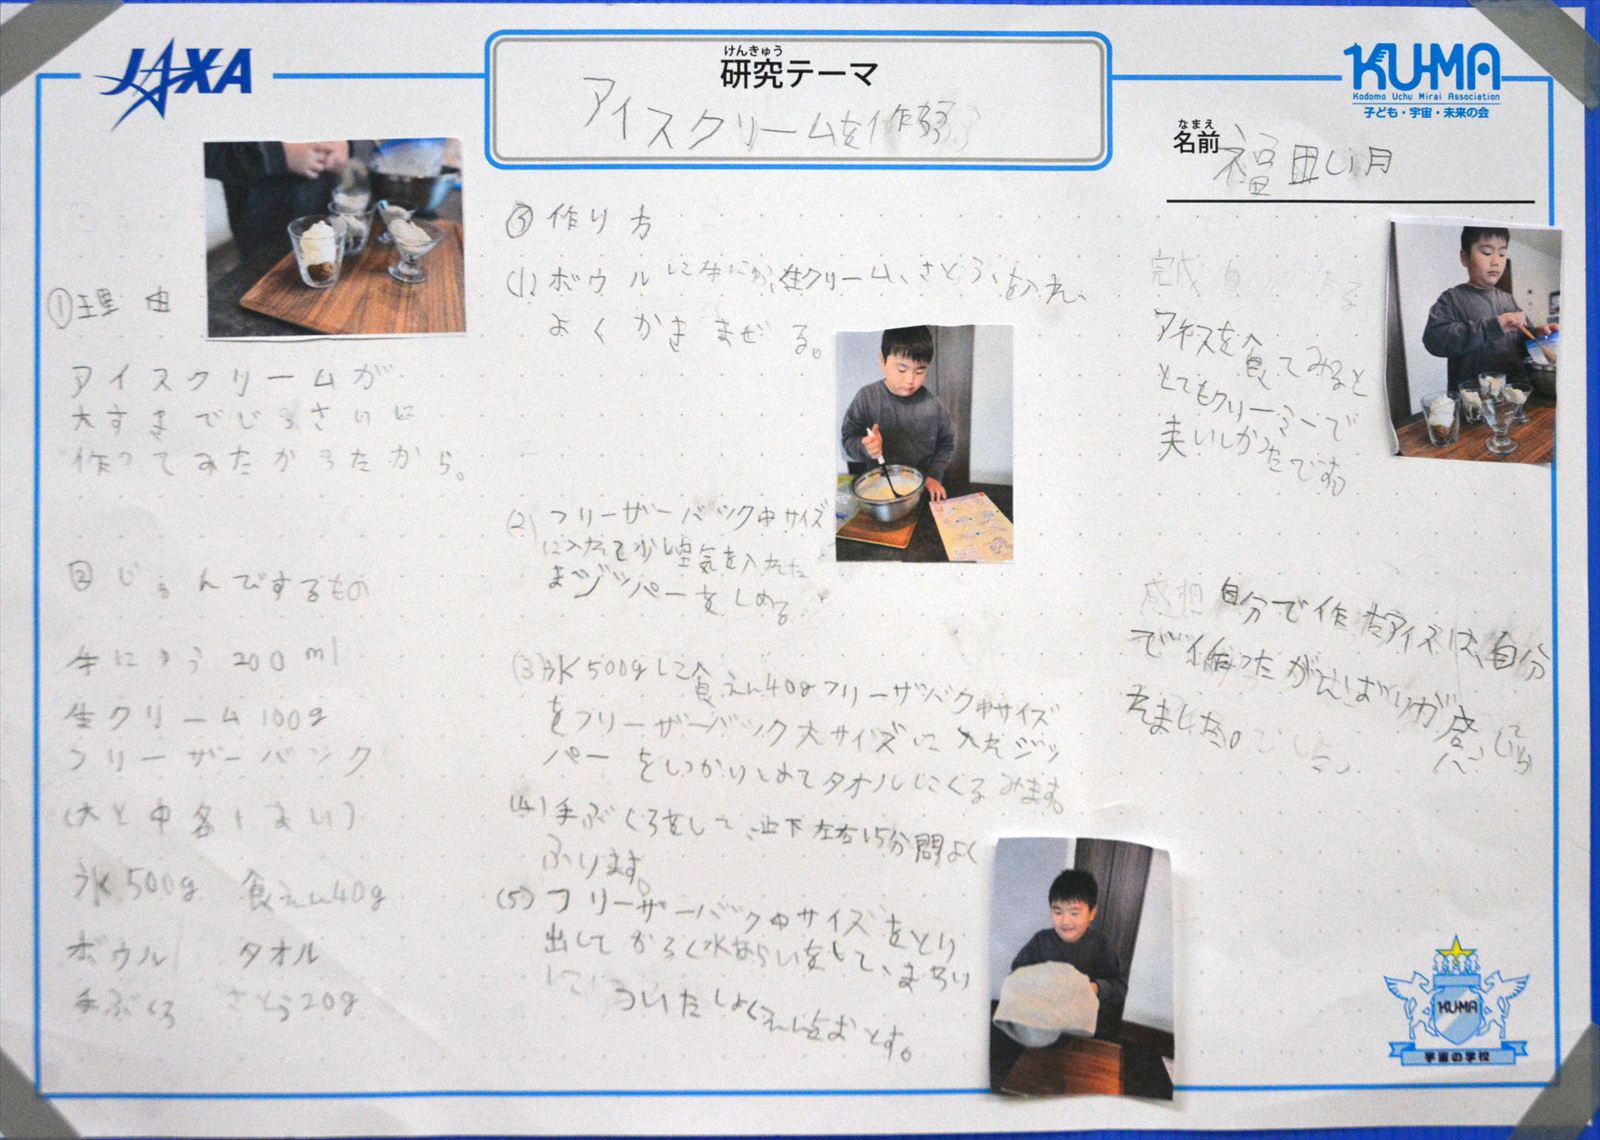 JAXA
けんきゅう
研究テーマ
アイスクリームを作ろう
KU-MA
Kodomo Uchu Mirai Association
子ども・宇宙・未来の会
なまえ
名前
福田い月
①理由
アイスクリームが
大すきでじっさいに
作ってみたかったから。
②じゅんびするもの
牛にゅう 200ml
生クリーム100g
フリーザーバック
(大と中各1まい)
氷500g 食えん40g
ボウル タオル
手ぶくろ さとう20g
③作り方
(1)ボウルに牛にゅう、生クリーム、さとう、を入れ、
よくかきまぜる。
(2)フリーザーバック中サイズ
に入れて少し空気を入れた
まジッパーをしめる
(3)氷500gと食えん40gフリーザバク中サイズ
をフリーザーバック大サイズに入れジッ
パーをしっかりしめてタオルにくるみます。
(4)手ぶくろをして、上下左右15分間よく
ふります。
(5)フリーザーバック中サイズをとり
出してかるく水あらいをして、まわり
に ついたしょくえんをおとす。
完成
アイスを食べてみると
とてもクリーミーで
美いしかったです。
感想 自分で作たアイスは、自分
で作ったがんばりが感じら
れました。
KU-MA
宇宙の学校